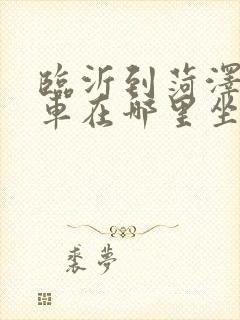 臨沂到菏澤
車在哪里坐
裘夢